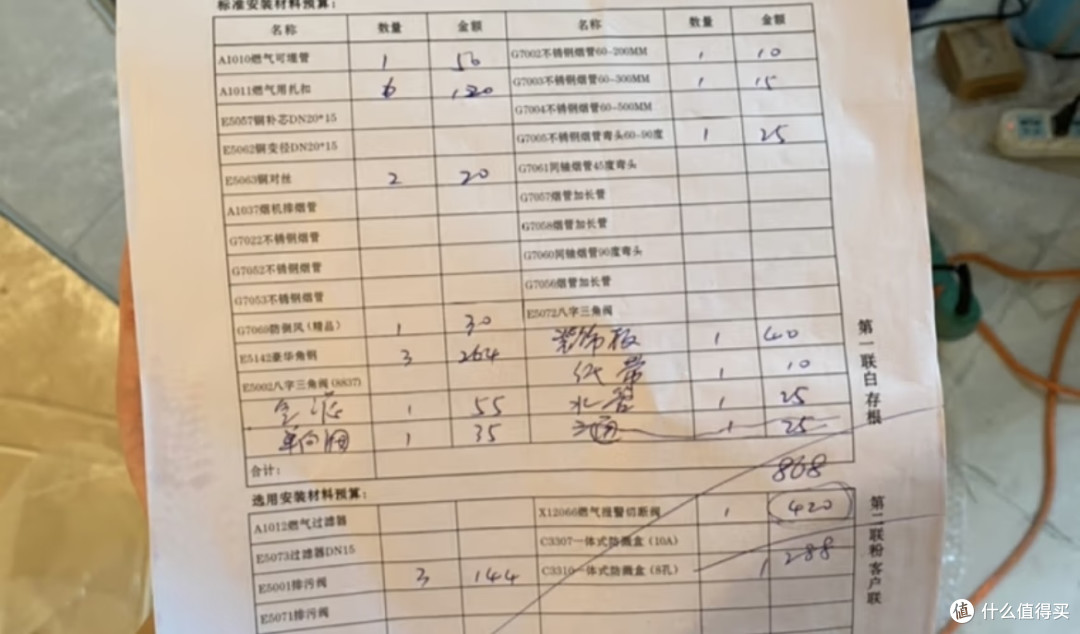 标准安装材料预算：
名称 数量 金额 名称 数量 金额
A1010燃气可埋管 1 56 G7002不锈钢烟管60-200MM 1 10
A1011燃气用扎扣 6 120 G7003不锈钢烟管60-300MM 1 15
E5057铜补芯DN20*15 G7004不锈钢烟管60-500MM
E5062铜变径DN20*15 G7005不锈钢烟管弯头60-90度 1 25
E5063铜对丝 2 20 G7061同轴烟管45度弯头
A1037烟机排烟管 G7057烟管加长管
G7022不锈钢烟管 G7058烟管加长管
G7052不锈钢烟管 G7060同轴烟管90度弯头
G7053不锈钢烟管 G7056烟管加长管
G7069防倒风（精品） 1 30 E5072八字三角阀
E5142豪华角钢 3 264 装饰板 1 40
E5002八字三角阀(8837) 1 10
1 55 水管 1 25
单向阀 1 35 1 25
合计： 868
选用安装材料预算：
A1012燃气过滤器 X12066燃气报警切断阀 1 420
E5073过滤器DN15 C3307一体式防溅盒（10A）
E5001排污阀 3 144 C3310一体式防溅盒（8孔） 1 288
E5071排污阀
第一联白存根
第二联粉客户联
值 什么值得买